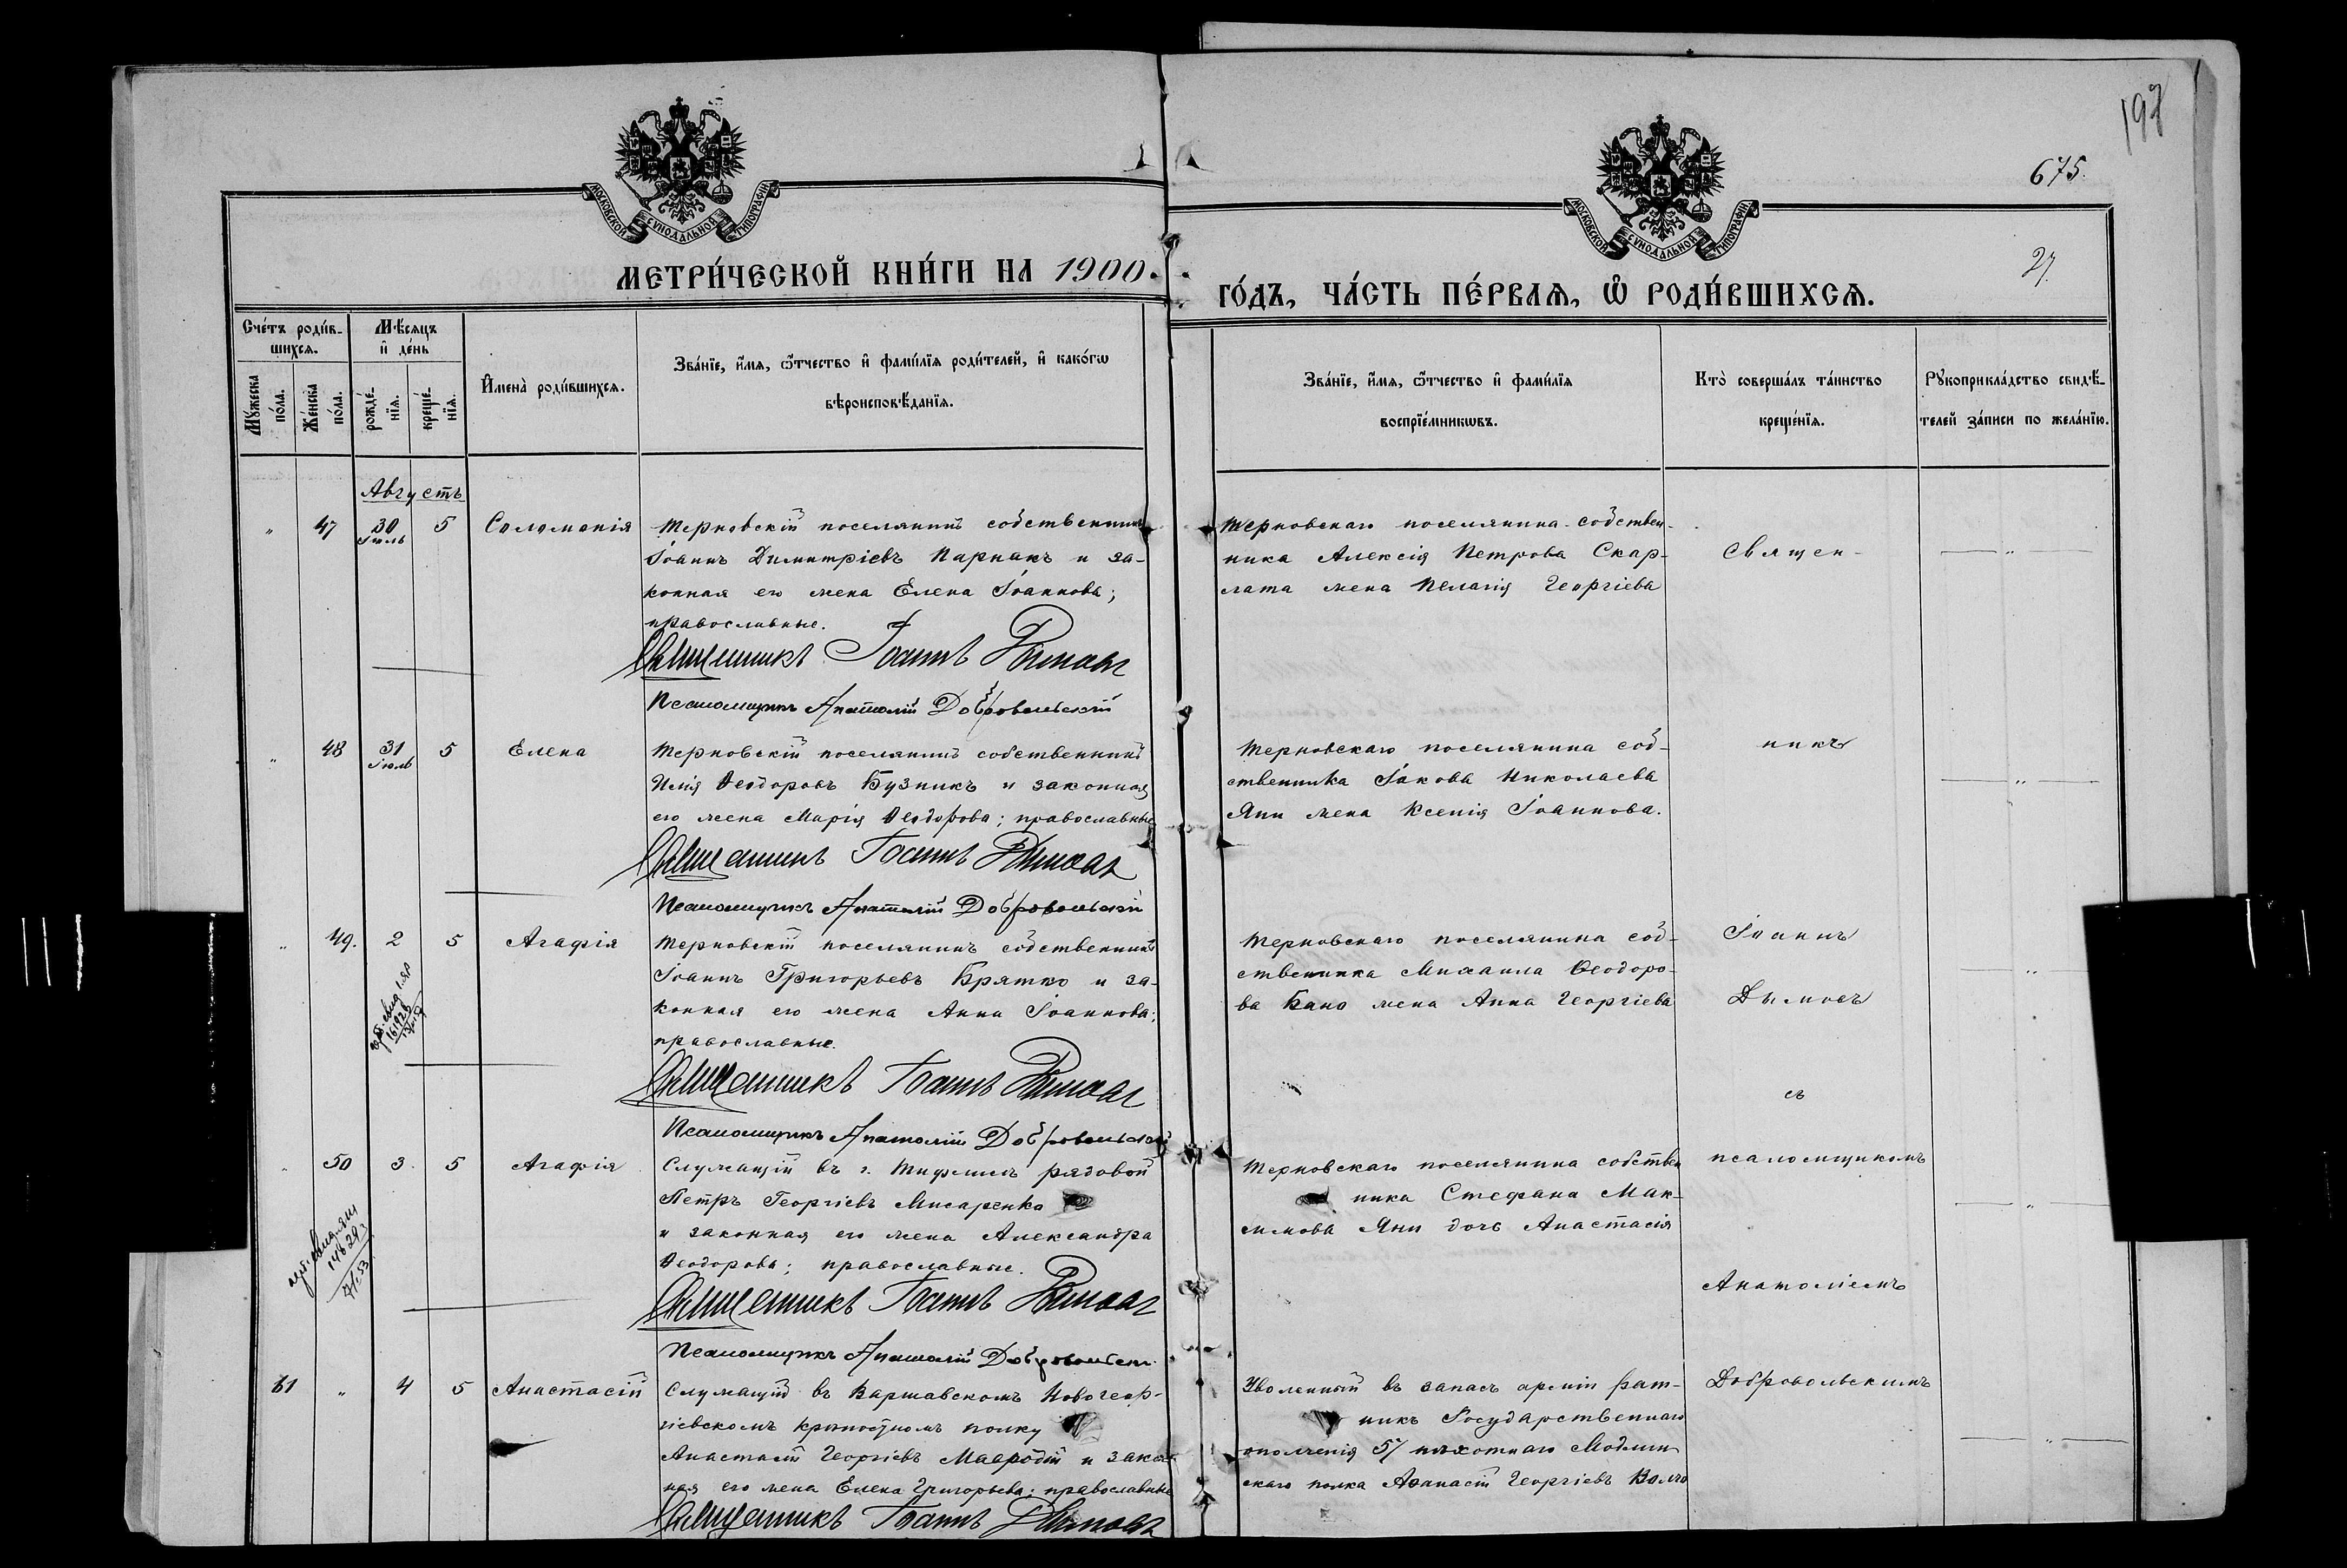 198
675.
27.
МОСКОВСКОЙ СУНОДАЛЬНОЙ ТИПОГРАФІИ
МОСКОВСКОЙ СУНОДАЛЬНОЙ ТИПОГРАФІИ
МЕТРИ́ЧЕСКОЙ КНИ́ГИ НА 1900.
ГО́ДЪ, ЧА́СТЬ ПЕ́РВАѦ, Ѽ РОДИ́ВШИХСѦ.
Сче́тъ роди́в-
шихсѧ.
Мѣ́сѧцъ
и҆ де́нь
Мꙋ́жеска
по́ла.
Же́нска
по́ла.
рожде́-
нїѧ.
креще́-
нїѧ.
И҆мена̀ роди́вшихсѧ.
Зва́нїе, и҆́мѧ, ѻ҆́тчество и҆ фами́лїѧ роди́телей, и҆ како́гѡ
вѣроисповѣ́данїѧ.
Зва́нїе, и҆́мѧ, ѻ҆́тчество и҆ фами́лїѧ
воспрїе́мникѡвъ.
Кто̀ соверша́лъ та́инство
креще́нїѧ.
Рꙋкоприкла́дство свидѣ́-
телей за́писи по жела́нїю.
Августъ
" 47 30 Іюль 5 Соломонія
Терновскій поселянинъ собственникъ
Іоаннъ Димитріевъ Парпакъ и за-
конная его жена Елена Іоаннова;
православные.
Священникъ Іоаннъ Дымовъ
Псаломщикъ Анатолій Добровольскій
Терновскаго поселянина собствен-
ника Алексія Петрова Скар-
лата жена Пелагія Георгіева
Священ-
" 48 31 Іюль 5 Елена
Терновскій поселянинъ собственникъ
Илія Ѳеодоровъ Бузникъ и законная
его жена Марія Ѳеодорова; православные
Священникъ Іоаннъ Дымовъ
Псаломщикъ Анатолій Добровольскій
Терновскаго поселянина соб-
ственника Іакова Николаева
Яни жена Ксенія Іоаннова.
никъ
" 49. 2 5 Агафія
Терновскій поселянинъ собственникъ
Іоаннъ Григорьевъ Брятко и за-
конная его жена Анна Іоаннова;
православные.
Священникъ Іоаннъ Дымовъ
Псаломщикъ Анатолій Добровольскій
Терновскаго поселянина соб-
ственника Михаила Ѳеодоро-
ва Кано жена Анна Георгіева
Іоаннъ
Дымовъ
съ
" 50 3. 5 Агафія
Служащій въ г. Тифлисѣ рядовой
Петръ Георгіевъ Писаренко
и законная его жена Александра
Ѳеодорова; православные.
Священникъ Іоаннъ Дымовъ
Псаломщикъ Анатолій Добровольскій
Терновскаго поселянина собствен
ника Стефана Мак-
симова Яни дочь Анастасія
псаломщикомъ
Анатоліемъ
51 " 4 5 Анастасій
Служащій въ Варшавскомъ Новогеор-
гіевскомъ крѣпостномъ полку
Анастасій Георгіевъ Мавродій и закон
ная его жена Елена Григорьева; православные
Священникъ Іоаннъ Дымовъ
Уволенный въ запасъ арміи рат-
никъ Государственнаго
ополченія 57 пѣхотнаго Модлин
скаго полка Аѳанасій Георгіевъ
Добровольскимъ